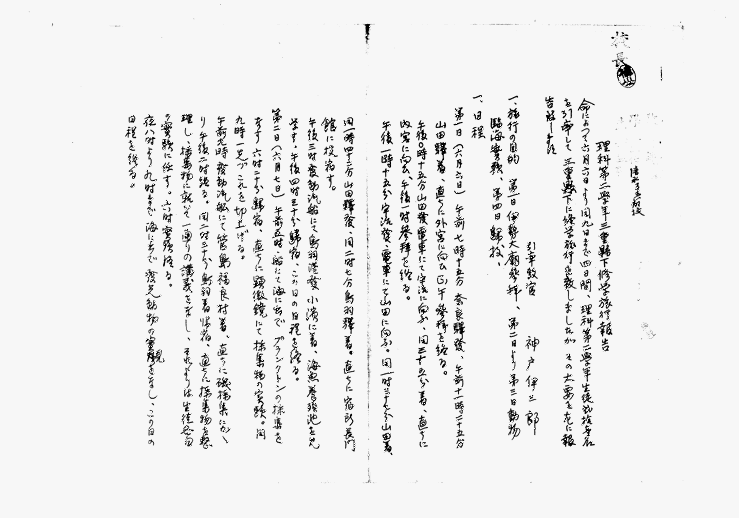 校長
理科第二學年三重縣下修學旅行報告
命によつて六月六日より同九日まで四日間、理科第二學年生徒
を引率して三重縣下に修學旅行を致しましたから その大要を左に報
告
引率教官 神戸伊三郎
一、旅行の目的 第一日 伊勢大廟參拜、第二日より第三日動物
臨海實驗、第四日歸校、
一、日程
第一日(六月六日) 午前七時十五分 奈良驛發、午前十一時二十五分
山田驛着、直ちに外宮に向ひ正午參拜を終る。
午後0時十五分山田發電車にて宇治に向ふ、同三十五分着、直ちに
内宮に向ふ、午後一時參拜を終る。
午後一時十五分宇治發、電車にて山田に向ふ。同一時三十七分山田着、
同一時四十二分山田驛發、同二時七分鳥羽驛着。直ちに宿所長門
館に投宿す。
午後三時發動汽船にて鳥羽港發 小濱に着、海魚養殖池を見
學す。午後四時三十分歸宿、この日の日程を終る。
第二日(六月七日) 午前五時 船にて海に出で プランクトンの採集を
なす 六時二十分歸宿、直ちに顯微鏡にて採集物の實驗。同
九時一先づこれを切上げる。
午前九時發動汽船にて菅島福良村着、直ちに磯採集にかゝ
り 午後二時終る。同二時三十分鳥羽着歸宿、直ちに採集物を整
理し、採集物に就て一通りの講義をなし、それよりは生徒各自
の實驗に任す。六時實驗終る。
夜八時より九時まで 海に出で 發光動物の實觀をなし、この日の
日程を終る。